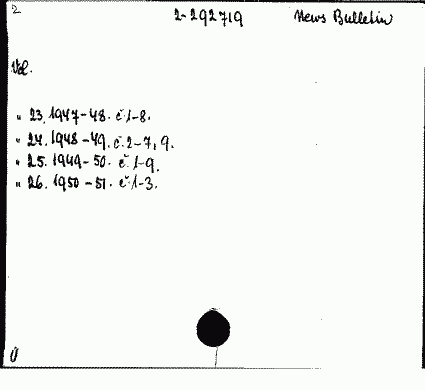 2 2-292719 News Bulletin
Vol.
" 23. 1947-48. č. 1-8.
" 24. 1948-49. č. 2-7, 9.
" 25. 1949-50. č. 1-9.
" 26. 1950-51. č. 1-3.